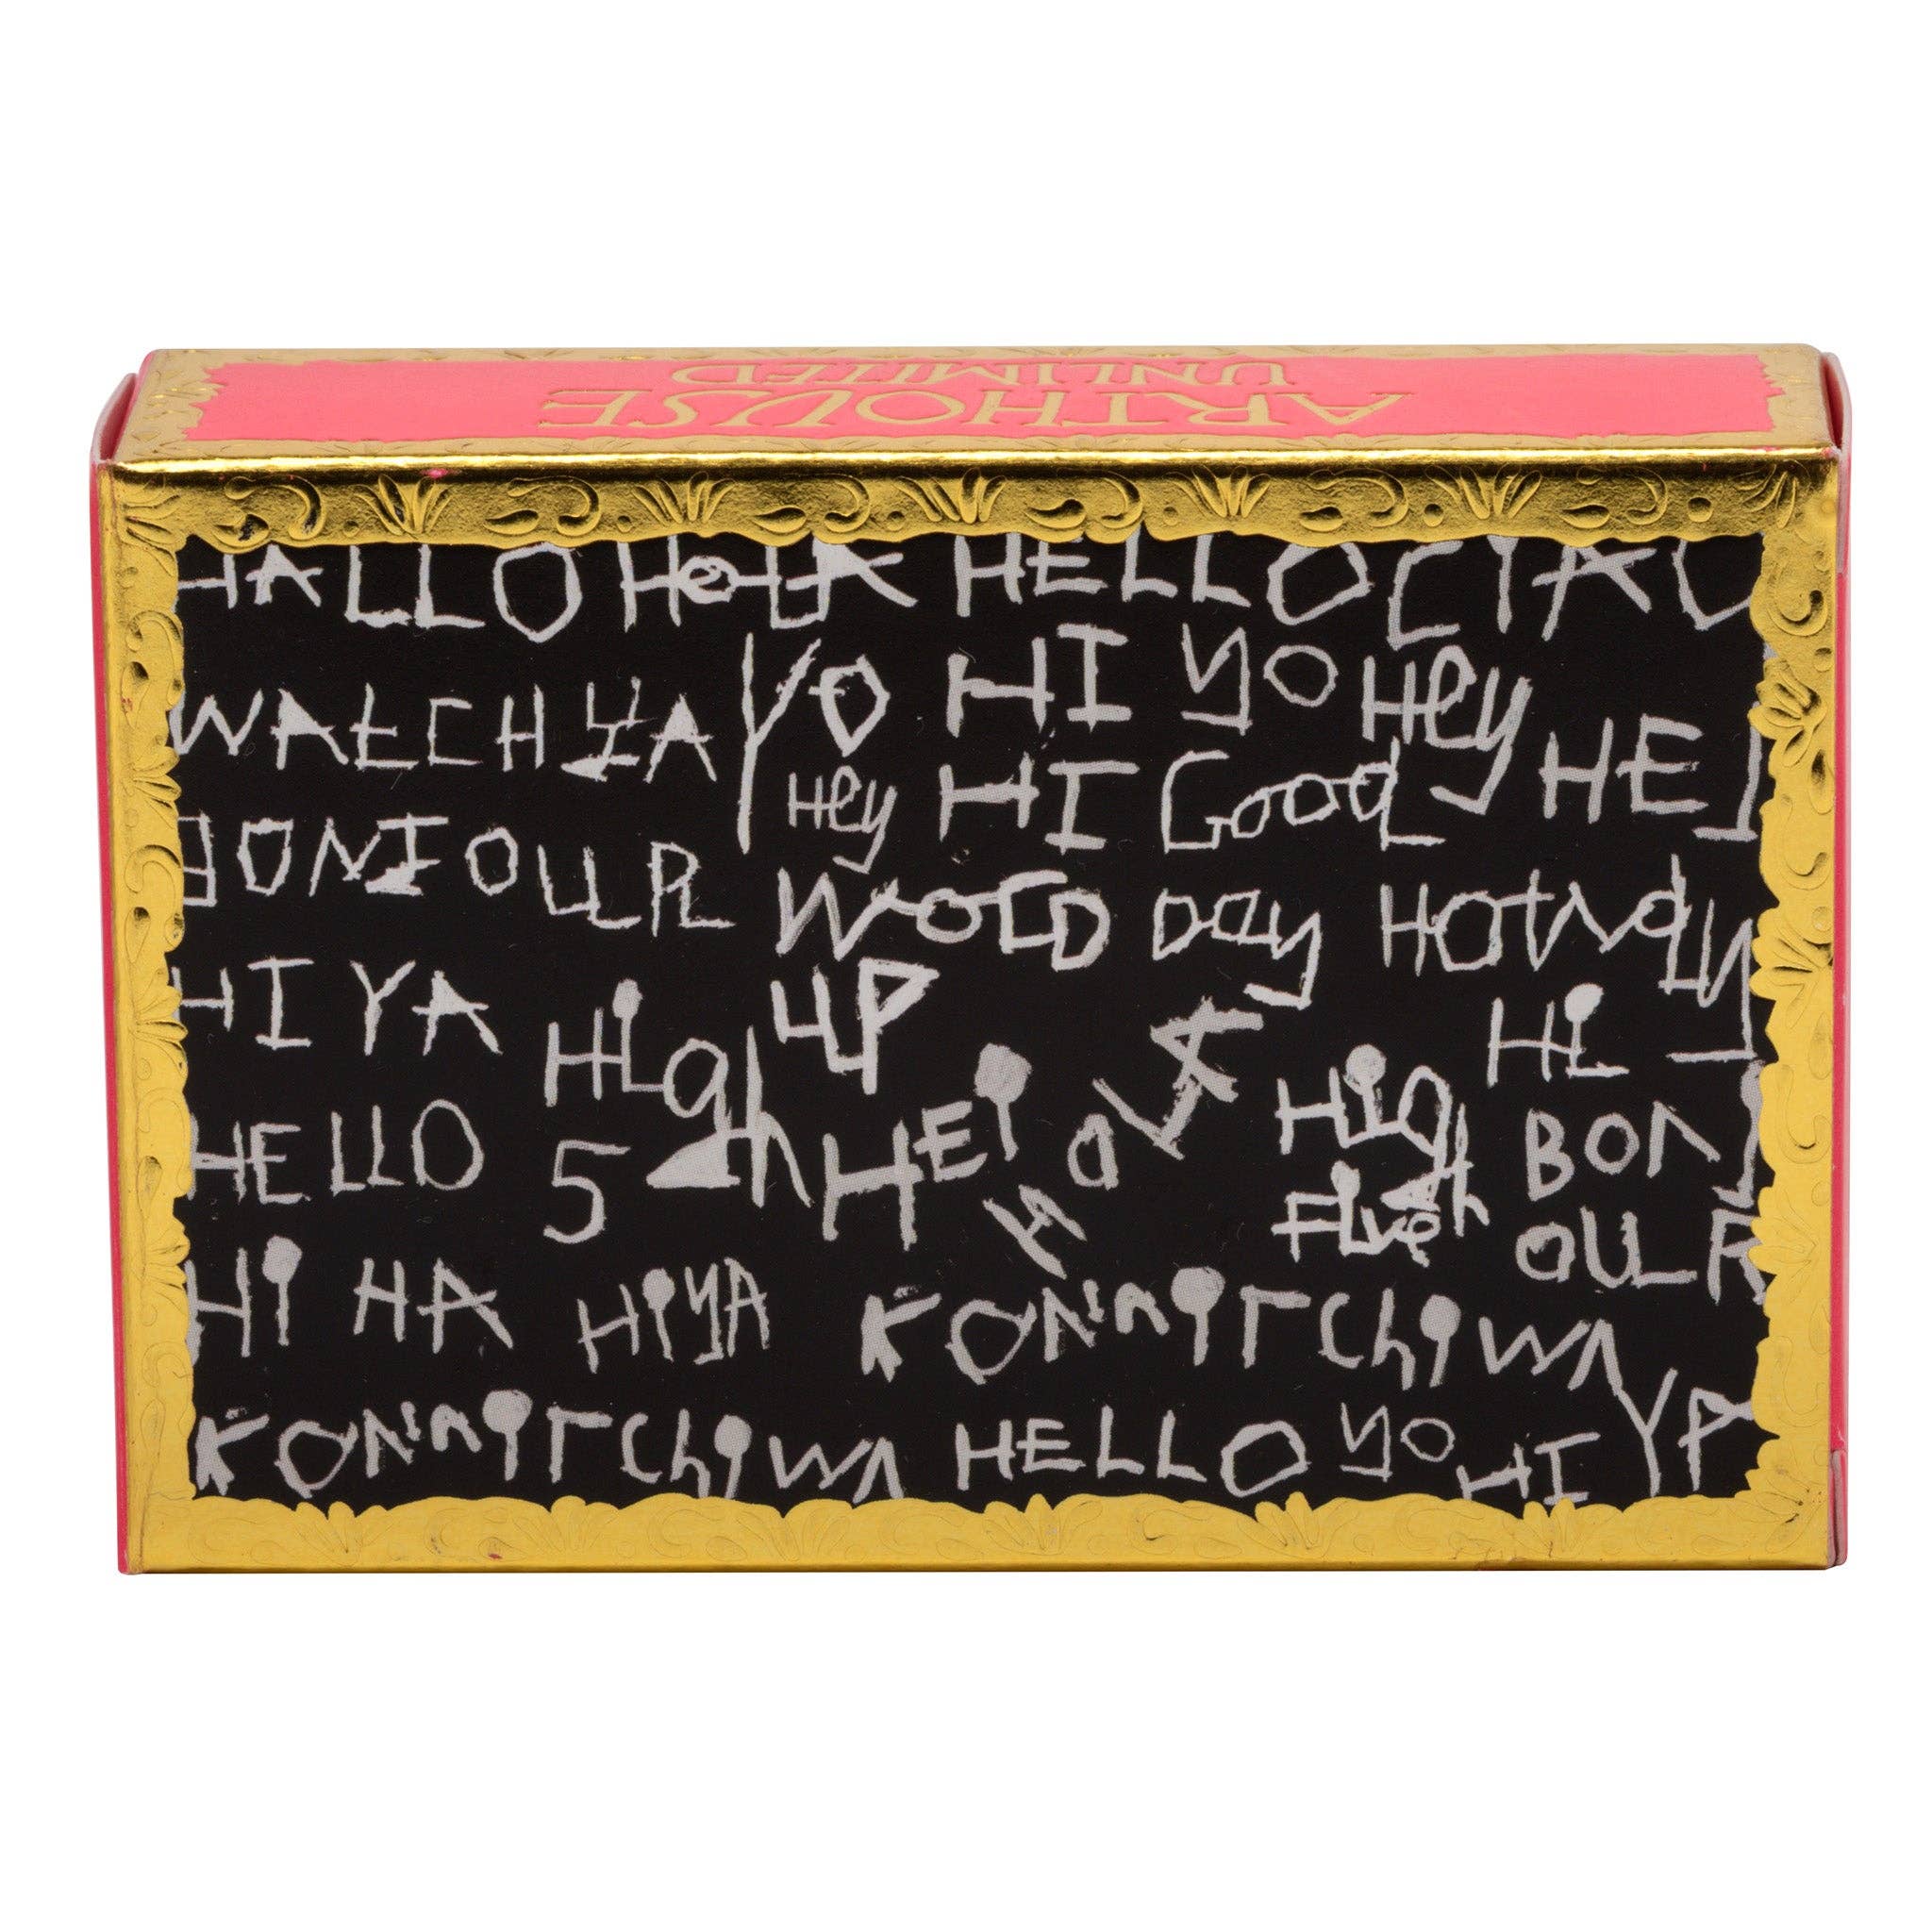 ARTHOUSE
UNLIMITED
HALLO HOLA HELLO CIAO
WATCHYA YO HI YO Hey HEJ
Hey HI Good
BONJOUR WORLD Day HOWdy
HIYA High UP Hi
HELLO 5 HEi HOLA High BON
Five OUR
Hi HA HiYA KONNiTChiWA
KONNiTChiWA HELLO YO HI YA